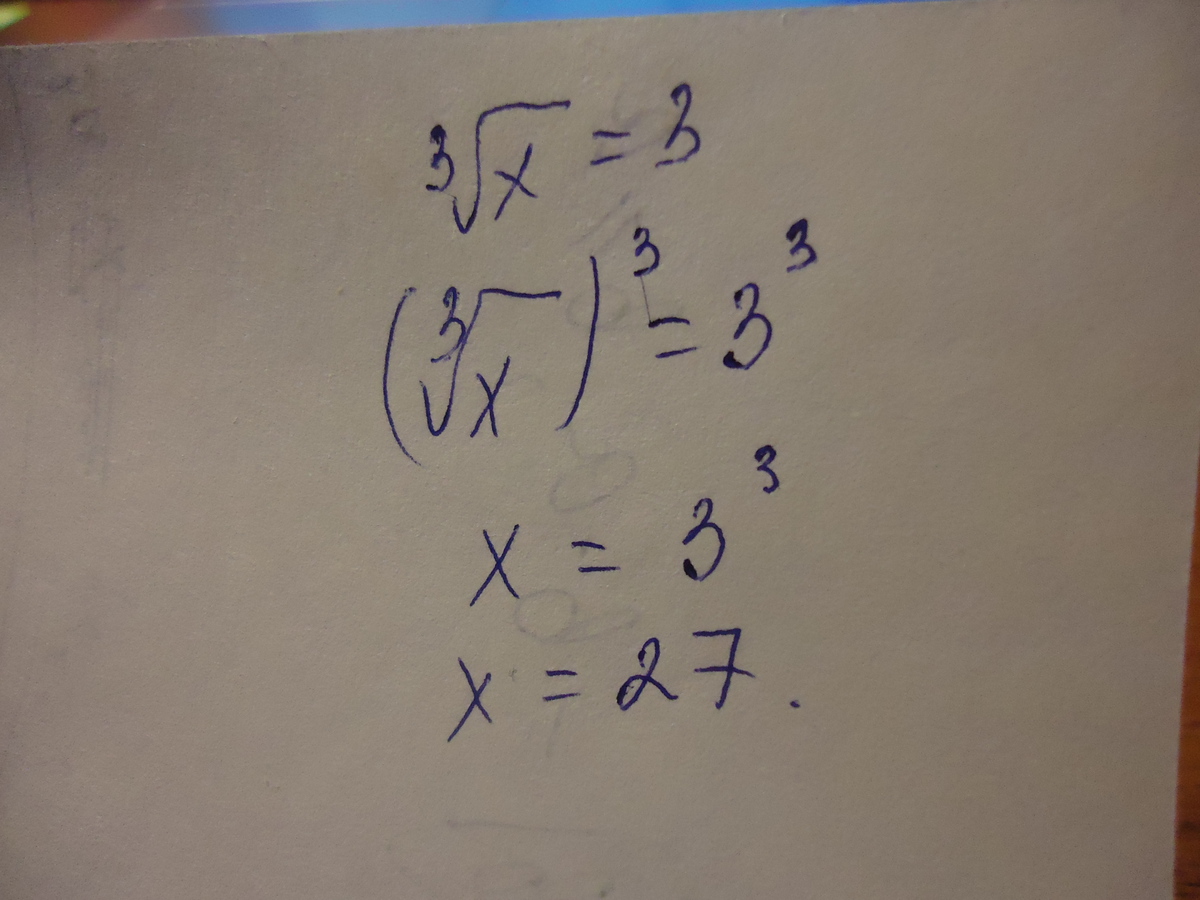 ∛x = 3
(∛x)³ = 3³
x = 3³
x = 27.